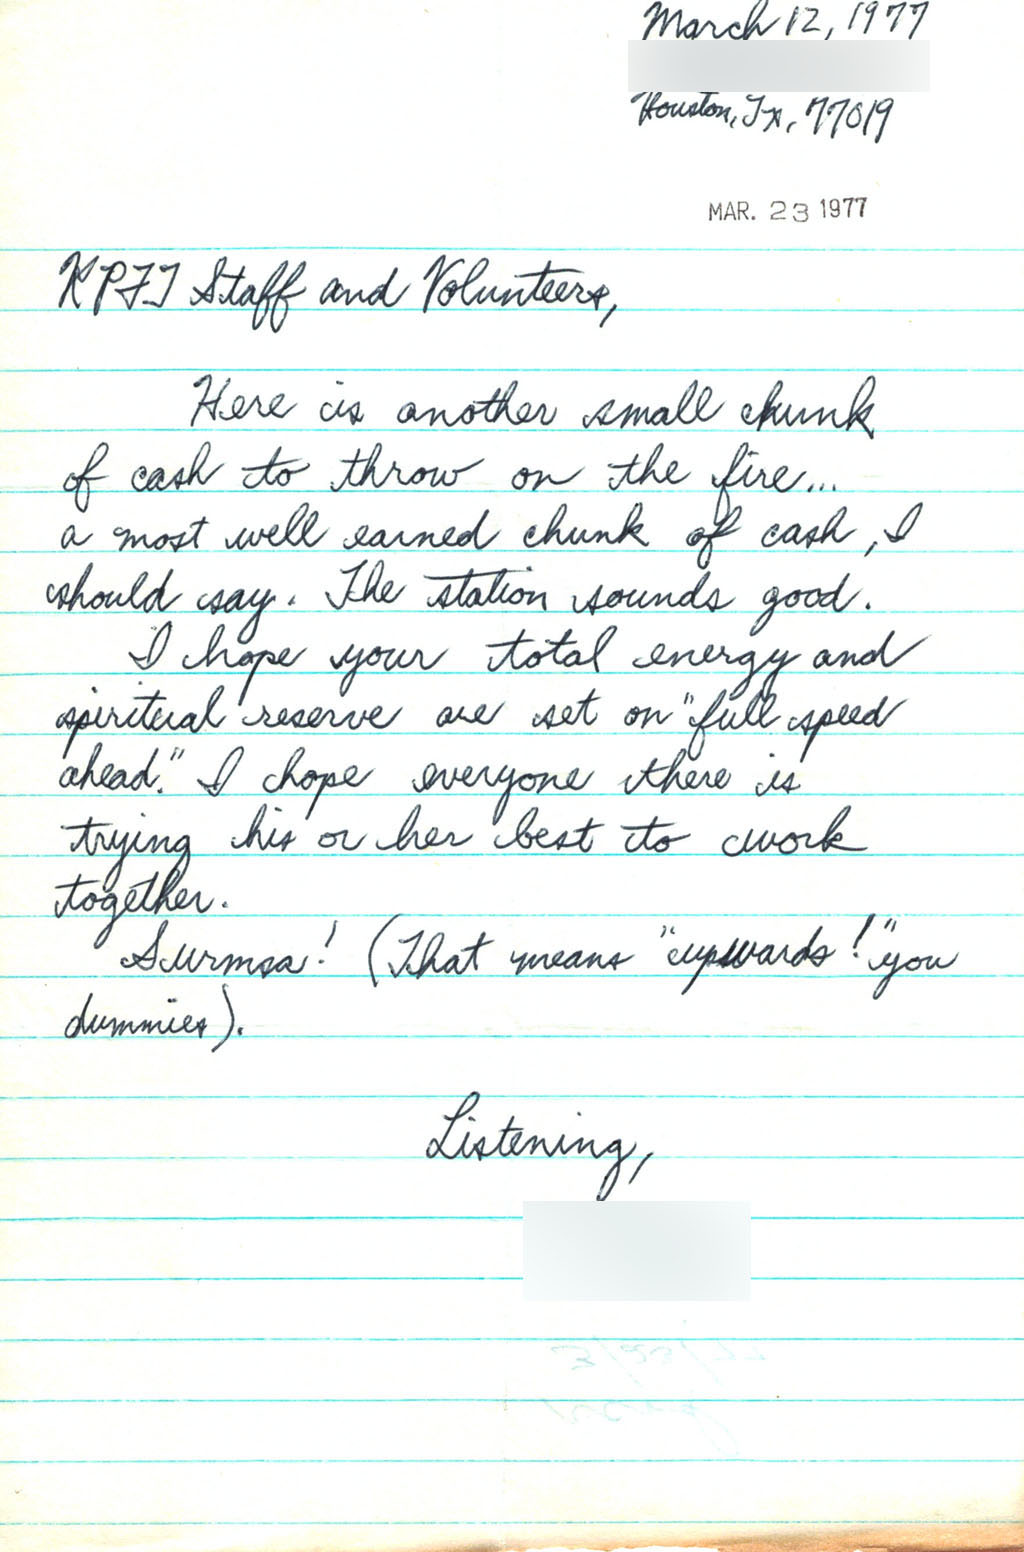 March 12, 1977
Houston, Tx, 77019
MAR. 23 1977
KPFT Staff and Volunteers,
Here is another small chunk
of cash to throw on the fire...
a most well earned chunk of cash, I
should say. The station sounds good.
I hope your total energy and
spiritual reserve are set on "full speed
ahead." I hope everyone there is
trying his or her best to work
together.
Surmsa! (That means "upwards!" you
dummies).
Listening,